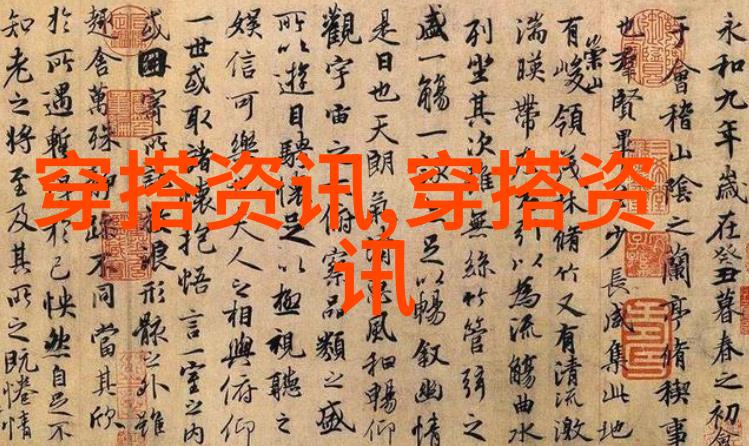 穿搭资讯,穿搭资
讯
永和九年歲在癸丑暮春之初會
于會稽山陰之蘭亭脩禊事
也羣賢畢少長咸集此地
有崇山峻領茂林脩竹又有清流激
湍暎帶左引以為流觴曲水
列坐其次雖無絲竹管弦之
盛一觴一足以暢敘幽情
是日也天朗氣清惠風和暢仰
觀宇宙之俯察品類之盛
所以遊目騁懷足以極視聽之
娛信可樂也夫人之相與俯仰
一世或取諸懷抱悟言一室之內
或因寄所託浪形骸之外雖
趣舍萬殊不同當其欣
於所遇暫得於己怏然自足不
知老之將至及其所之既惓情